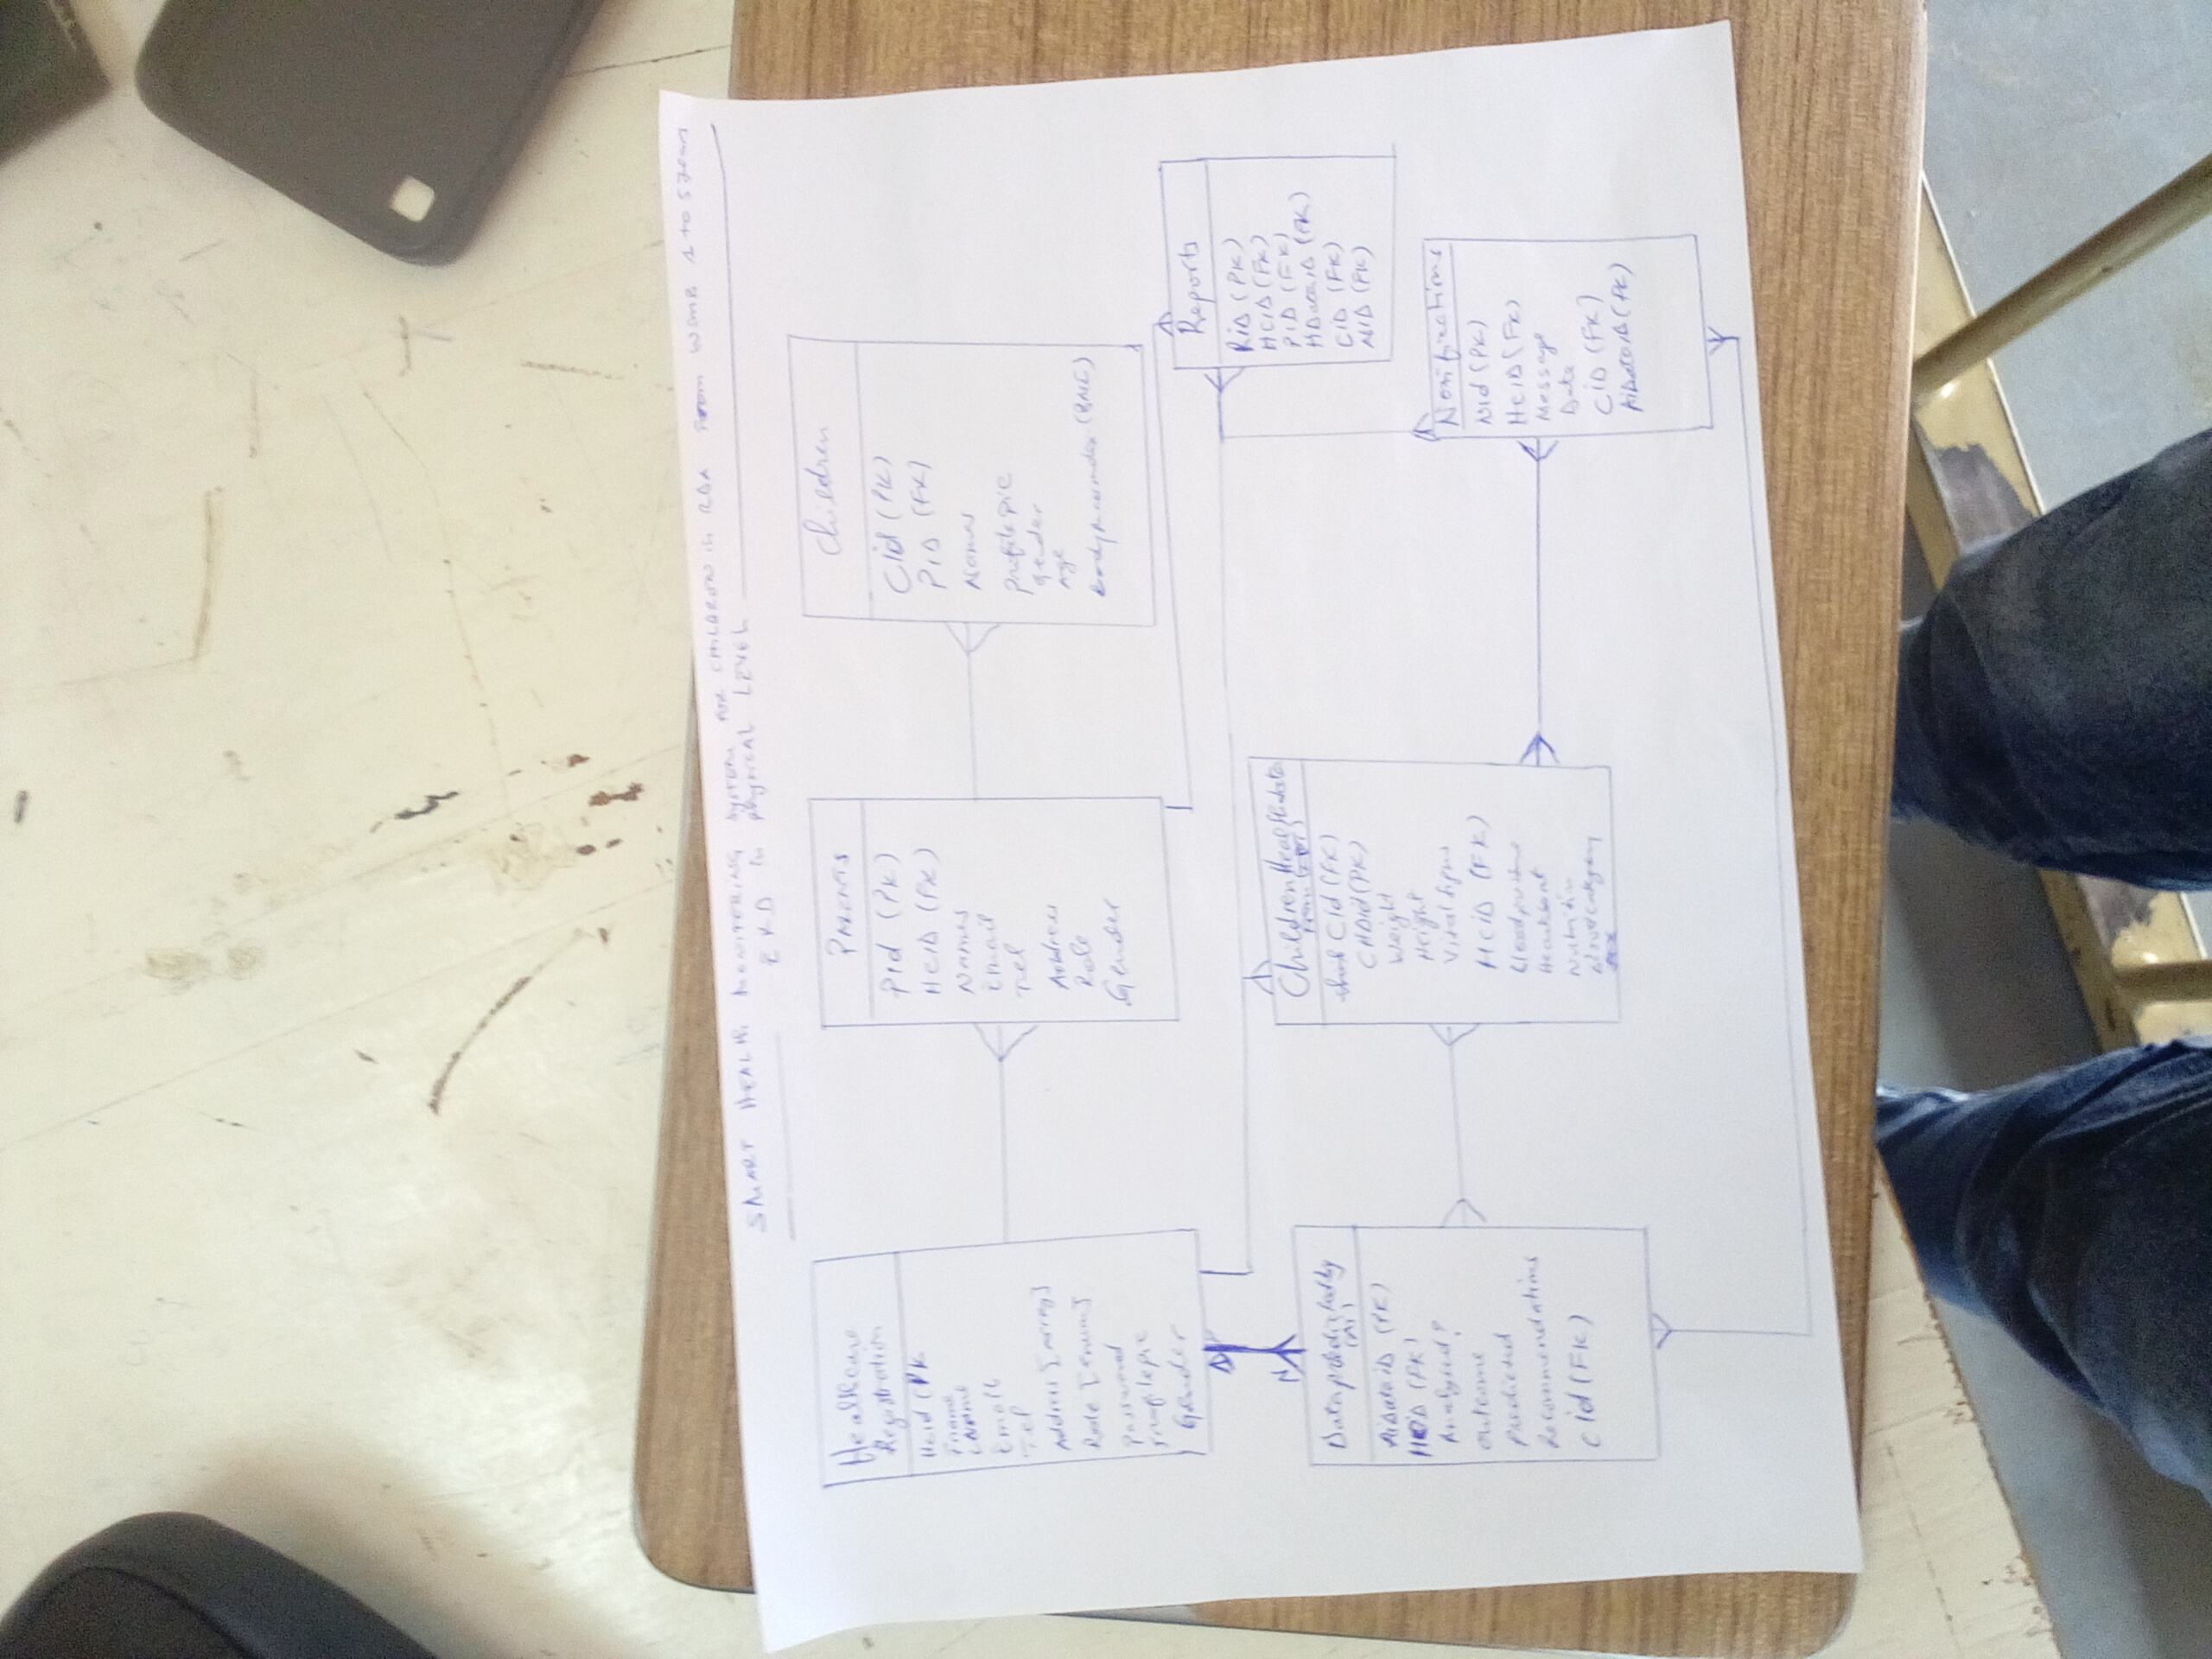 SMART HEALTH MONITORING SYSTEM FOR CHILDREN in RDA From WOMB 1 to 5 years
ERD in physical LEVEL
HealthCare
Registration
Hcid (PK
Fname
Lname
Email
Tel
Address [array]
Role [enum]
Password
Gender
PARENTS
Pid (PK)
HCID (FK)
Names
Email
Tel
Address
Role
Gender
Children
Cid (PK)
PID (FK)
Names
Profilepic
gender
Age
(BMI)
Reports
RiD (PK)
HCiD (FK)
PiD (FK)
(FK)
CiD (FK)
NiD (FK)
by
(AI)
AiDataiD (PK)
(FK)
Analysed?
Outcome
Predicted
Recommendations
Cid (FK)
Children Healthdata
Cid (FK)
CHDid (PK)
Weight
Height
Vital signs
HCiD (FK)
Heartbeat
Nutrition
Notifications
Nid (PK)
HCiD (FK)
Message
Date
CiD (FK)
AiDataiD (FK)